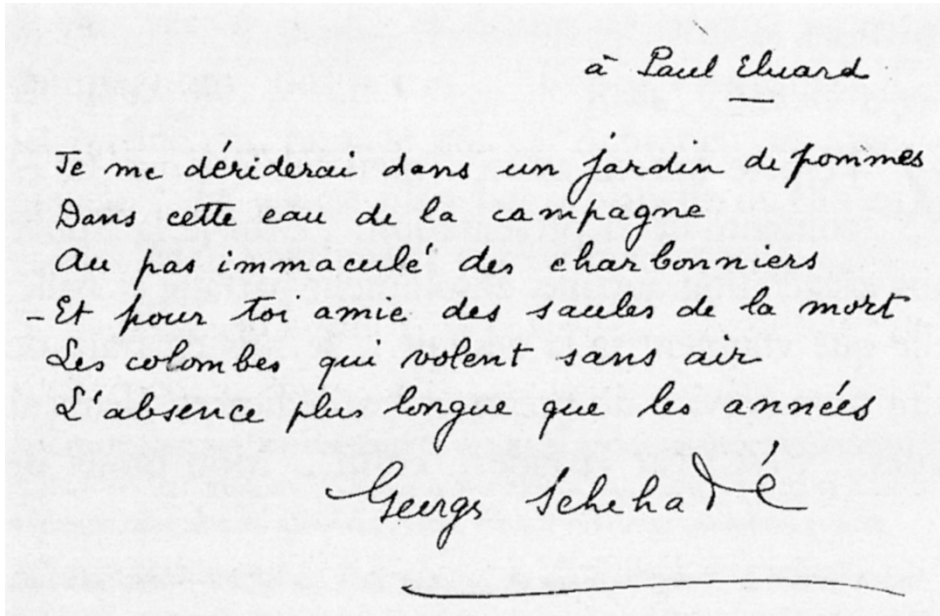 à Paul Eluard
Je me dériderai dans un jardin de pommes
Dans cette eau de la campagne
Au pas immaculé des charbonniers
- Et pour toi amie des saules de la mort
Les colombes qui volent sans air
L'absence plus longue que les années
Georges Schehadé